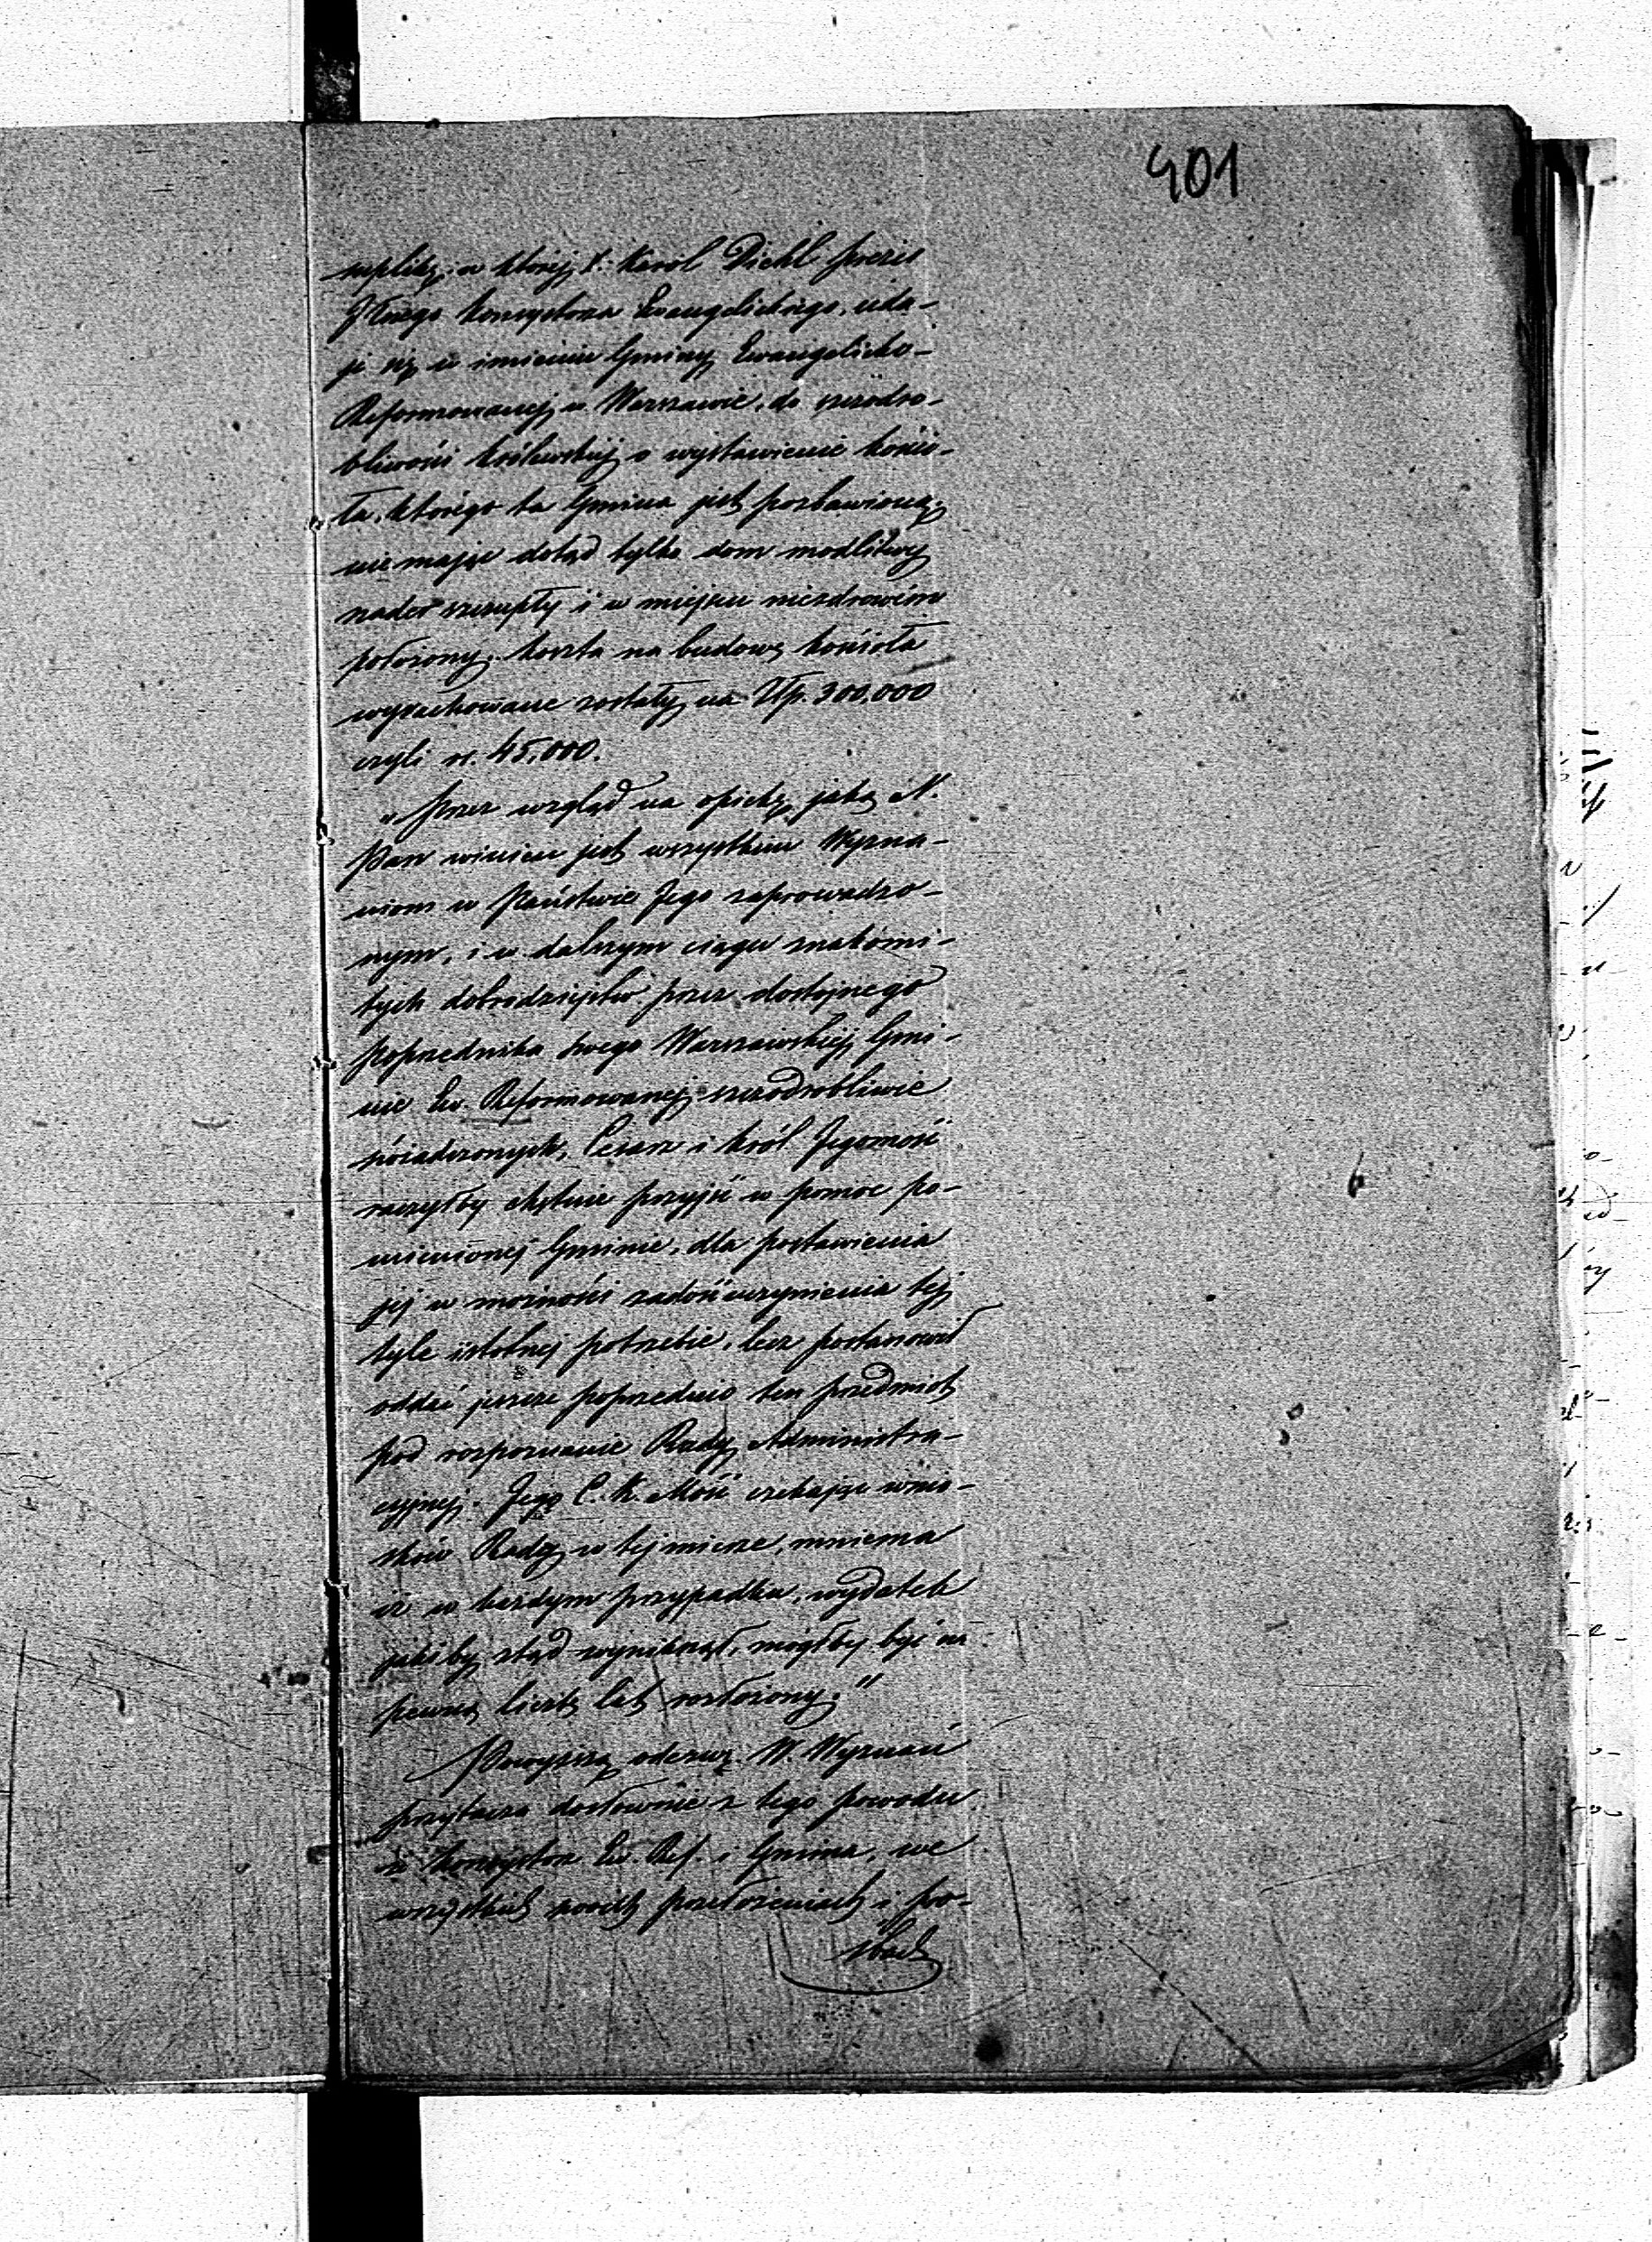 401
suplikę, w której X. Karol Diehl prezes
Jlnego Konsystorza Ewangelickiego, uda-
je się w imieniu Gminy Ewangelicko-
Reformowanej w Warszawie, do szczodro-
bliwości królewskiej o wystawienie kościo-
ła, którego ta Gmina jest pozbawioną,
nie mając dotąd tylko dom modlitwy
nader szczupły i w miejscu niezdrowém
położony. Koszta na budowę kościoła
wyrachowane zostały na Złp. 300,000
czyli rs. 45,000.
„Przez wzgląd na opiekę, jaką N.
Pan winien jest wszystkim Wyzna-
niom w Państwie Jego zaprowadzo-
nym, i w dalszym ciągu znakomi-
tych dobrodziejstw przez dostojnego
Poprzednika Swego Warszawskiéj Gmi-
nie Ew. Reformowanej szczodrobliwie
świadczonych, Cesarz i Król Jegomość
raczyłby chętnie przyjść w pomoc po-
mienionej Gminie, dla postawienia
jej w możności zadość uczynienia tej
tyle istotnej potrzebie, lecz postanowił
oddać jeszcze poprzednio ten przedmiot
pod rozpoznanie Rady Administra-
cyjnej. Jego C. K. Mość czekając wnio-
sków Rady w tej mierze, mniema
iż w każdym przypadku, wydatek
jakiby ztąd wyniknął, mógłby być na
pewną liczbę lat rozłożony."
Powyższą odezwę W. Wyznań
przytacza dosłownie z tego powodu
iż Konsystorz Ew. Ref. i Gmina, we
wszystkich swoich przełożeniach i pro-
śbach